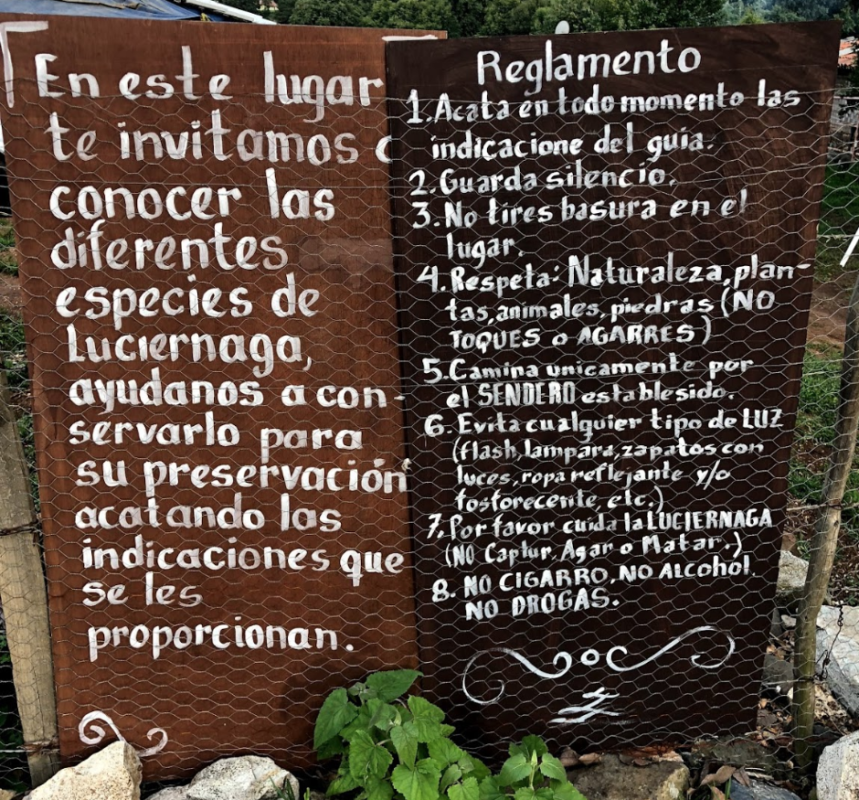 En este lugar
te invitamos a
conocer las
diferentes
especies de
Luciernaga,
ayudanos a con-
servarlo para
su preservación
acatando las
indicaciones que
se les
proporcionan.
Reglamento
1. Acata en todo momento las
indicacione del guia.
2. Guarda silencio.
3. No tires basura en el
lugar.
4. Respeta: Naturaleza, plan-
tas, animales, piedras (NO
TOQUES o AGARRES)
5. Camina unicamente por
el SENDERO establesido.
6. Evita cualquier tipo de LUZ
(flash, lampara, zapatos con
luces, ropa reflejante y/o
fosforecente, etc.)
7. Por favor cuida la LUCIERNAGA
(NO Captur. Agar o Matar.)
8. NO CIGARRO. NO ALCOHOL.
NO DROGAS.